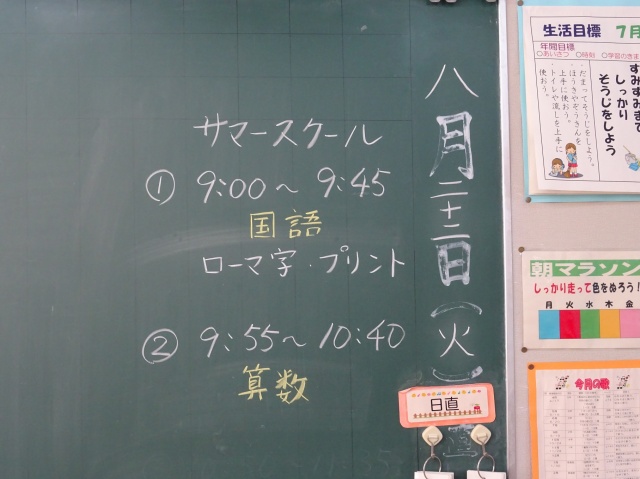 サマースクール
① 9:00〜9:45
国語
ローマ字・プリント
② 9:55〜10:40
算数
八月二十二日(火)
日直
生活目標 7月
年間目標
○あいさつ ○時刻
すみずみまで
しっかり
そうじをしよう
だまってそうじをしよう。
ほうきやぞうきんを
上手に使おう。
トイレや流しを上手に
使おう。
朝マラソン
しっかり走って色をぬろう!
月 火 水 木 金
今月の歌